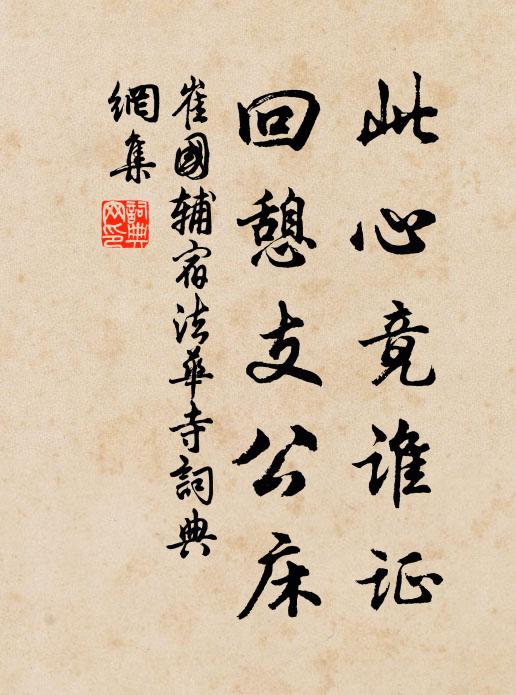 此心竟谁证
回憩支公床
崔國輔宿法華寺詞典
網集
詞典
网印